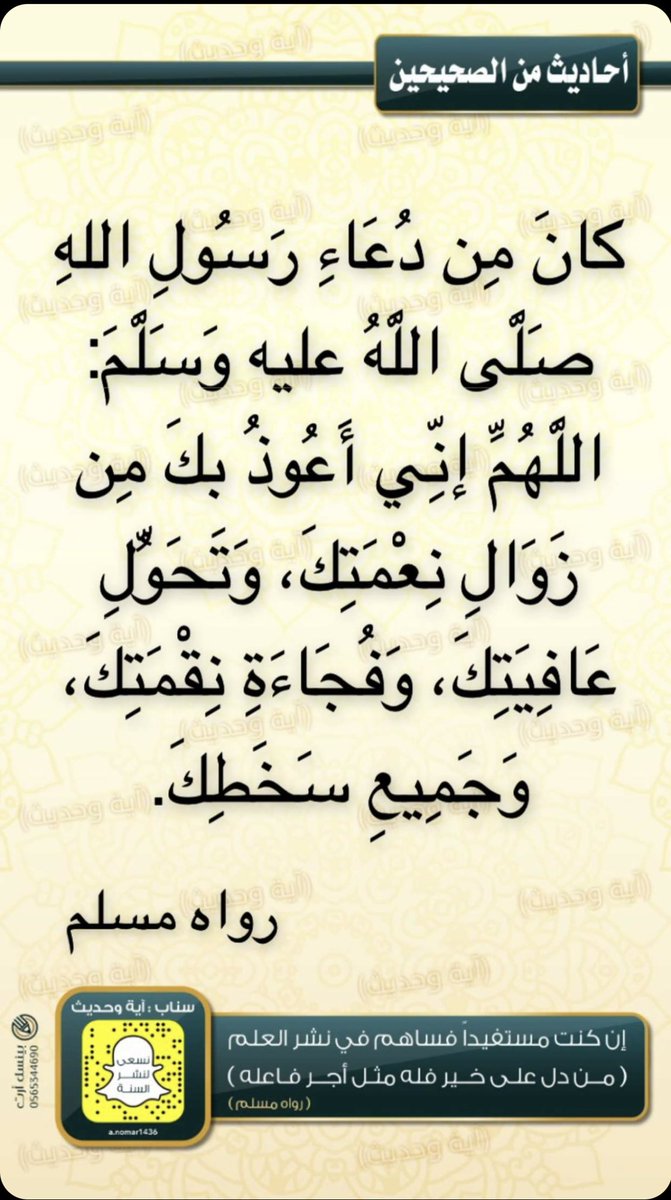 أحاديث من الصحيحين
كانَ مِن دُعَاءِ رَسُولِ اللهِ
صَلَّى اللَّهُ عليه وَسَلَّمَ:
اللَّهُمِّ إنِّي أَعُوذُ بكَ مِن
زَوَالِ نِعْمَتِكَ، وَتَحَوُّلِ
عَافِيَتِكَ، وَفُجَاءَةِ نِقْمَتِكَ،
وَجَمِيعِ سَخَطِكَ.
رواه مسلم
إن كنت مستفيداً فساهم في نشر العلم
( من دل على خير فله مثل أجر فاعله )
( رواه مسلم )
سناب : آية وحديث
نسعى
لنشر
السنة
a.nomar1436
بينسك آرت
0565344690
(آية وحديث)